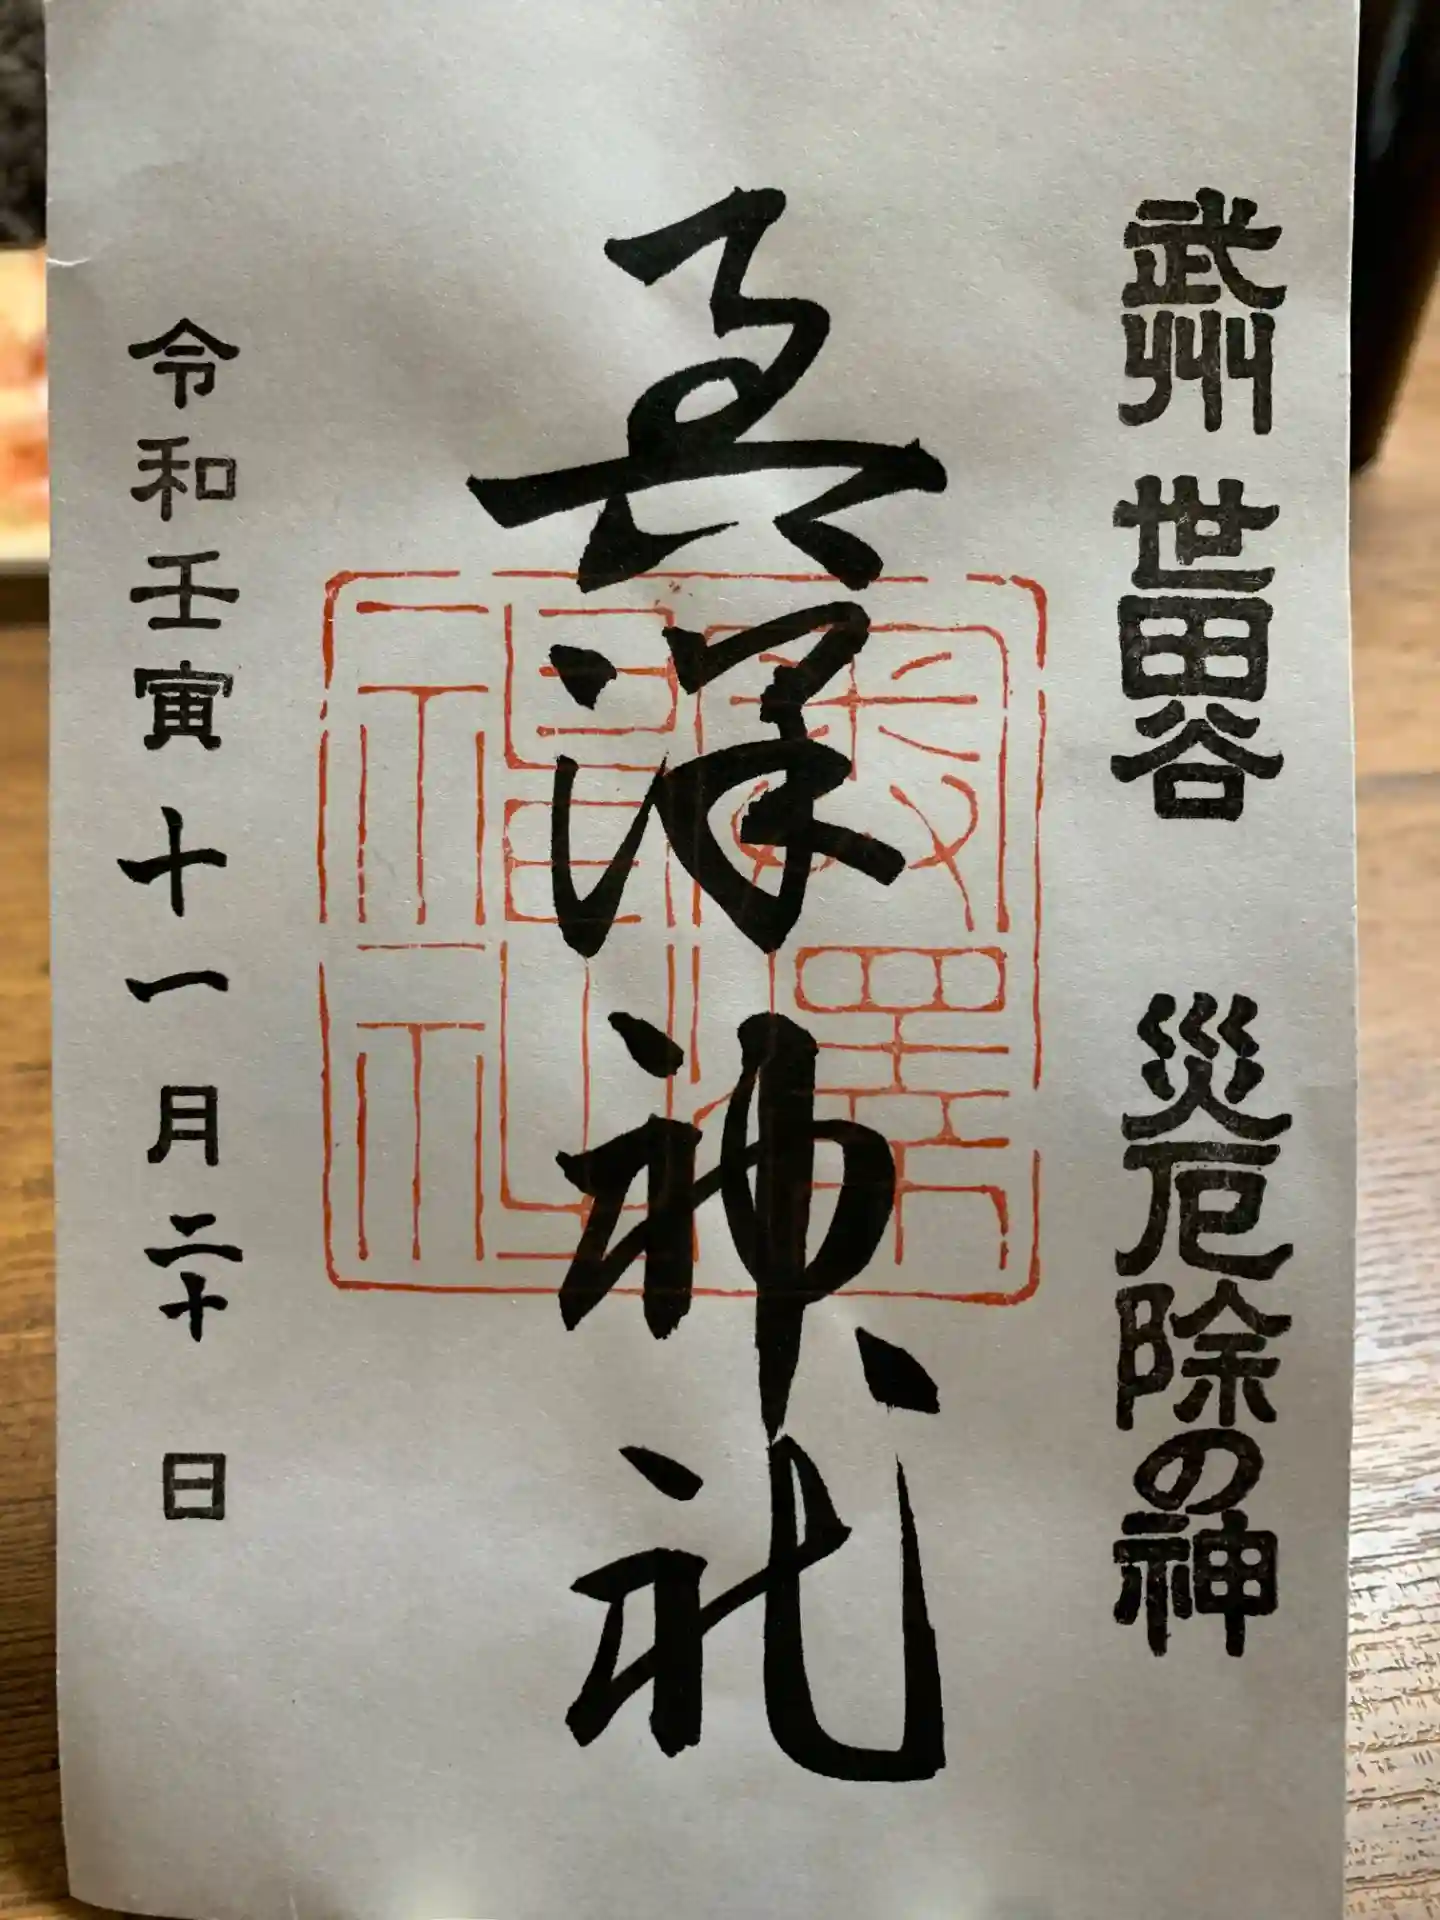 武州 世田谷 災厄除の神
奥澤神社
奥澤
神社
令和壬寅十一月二十日